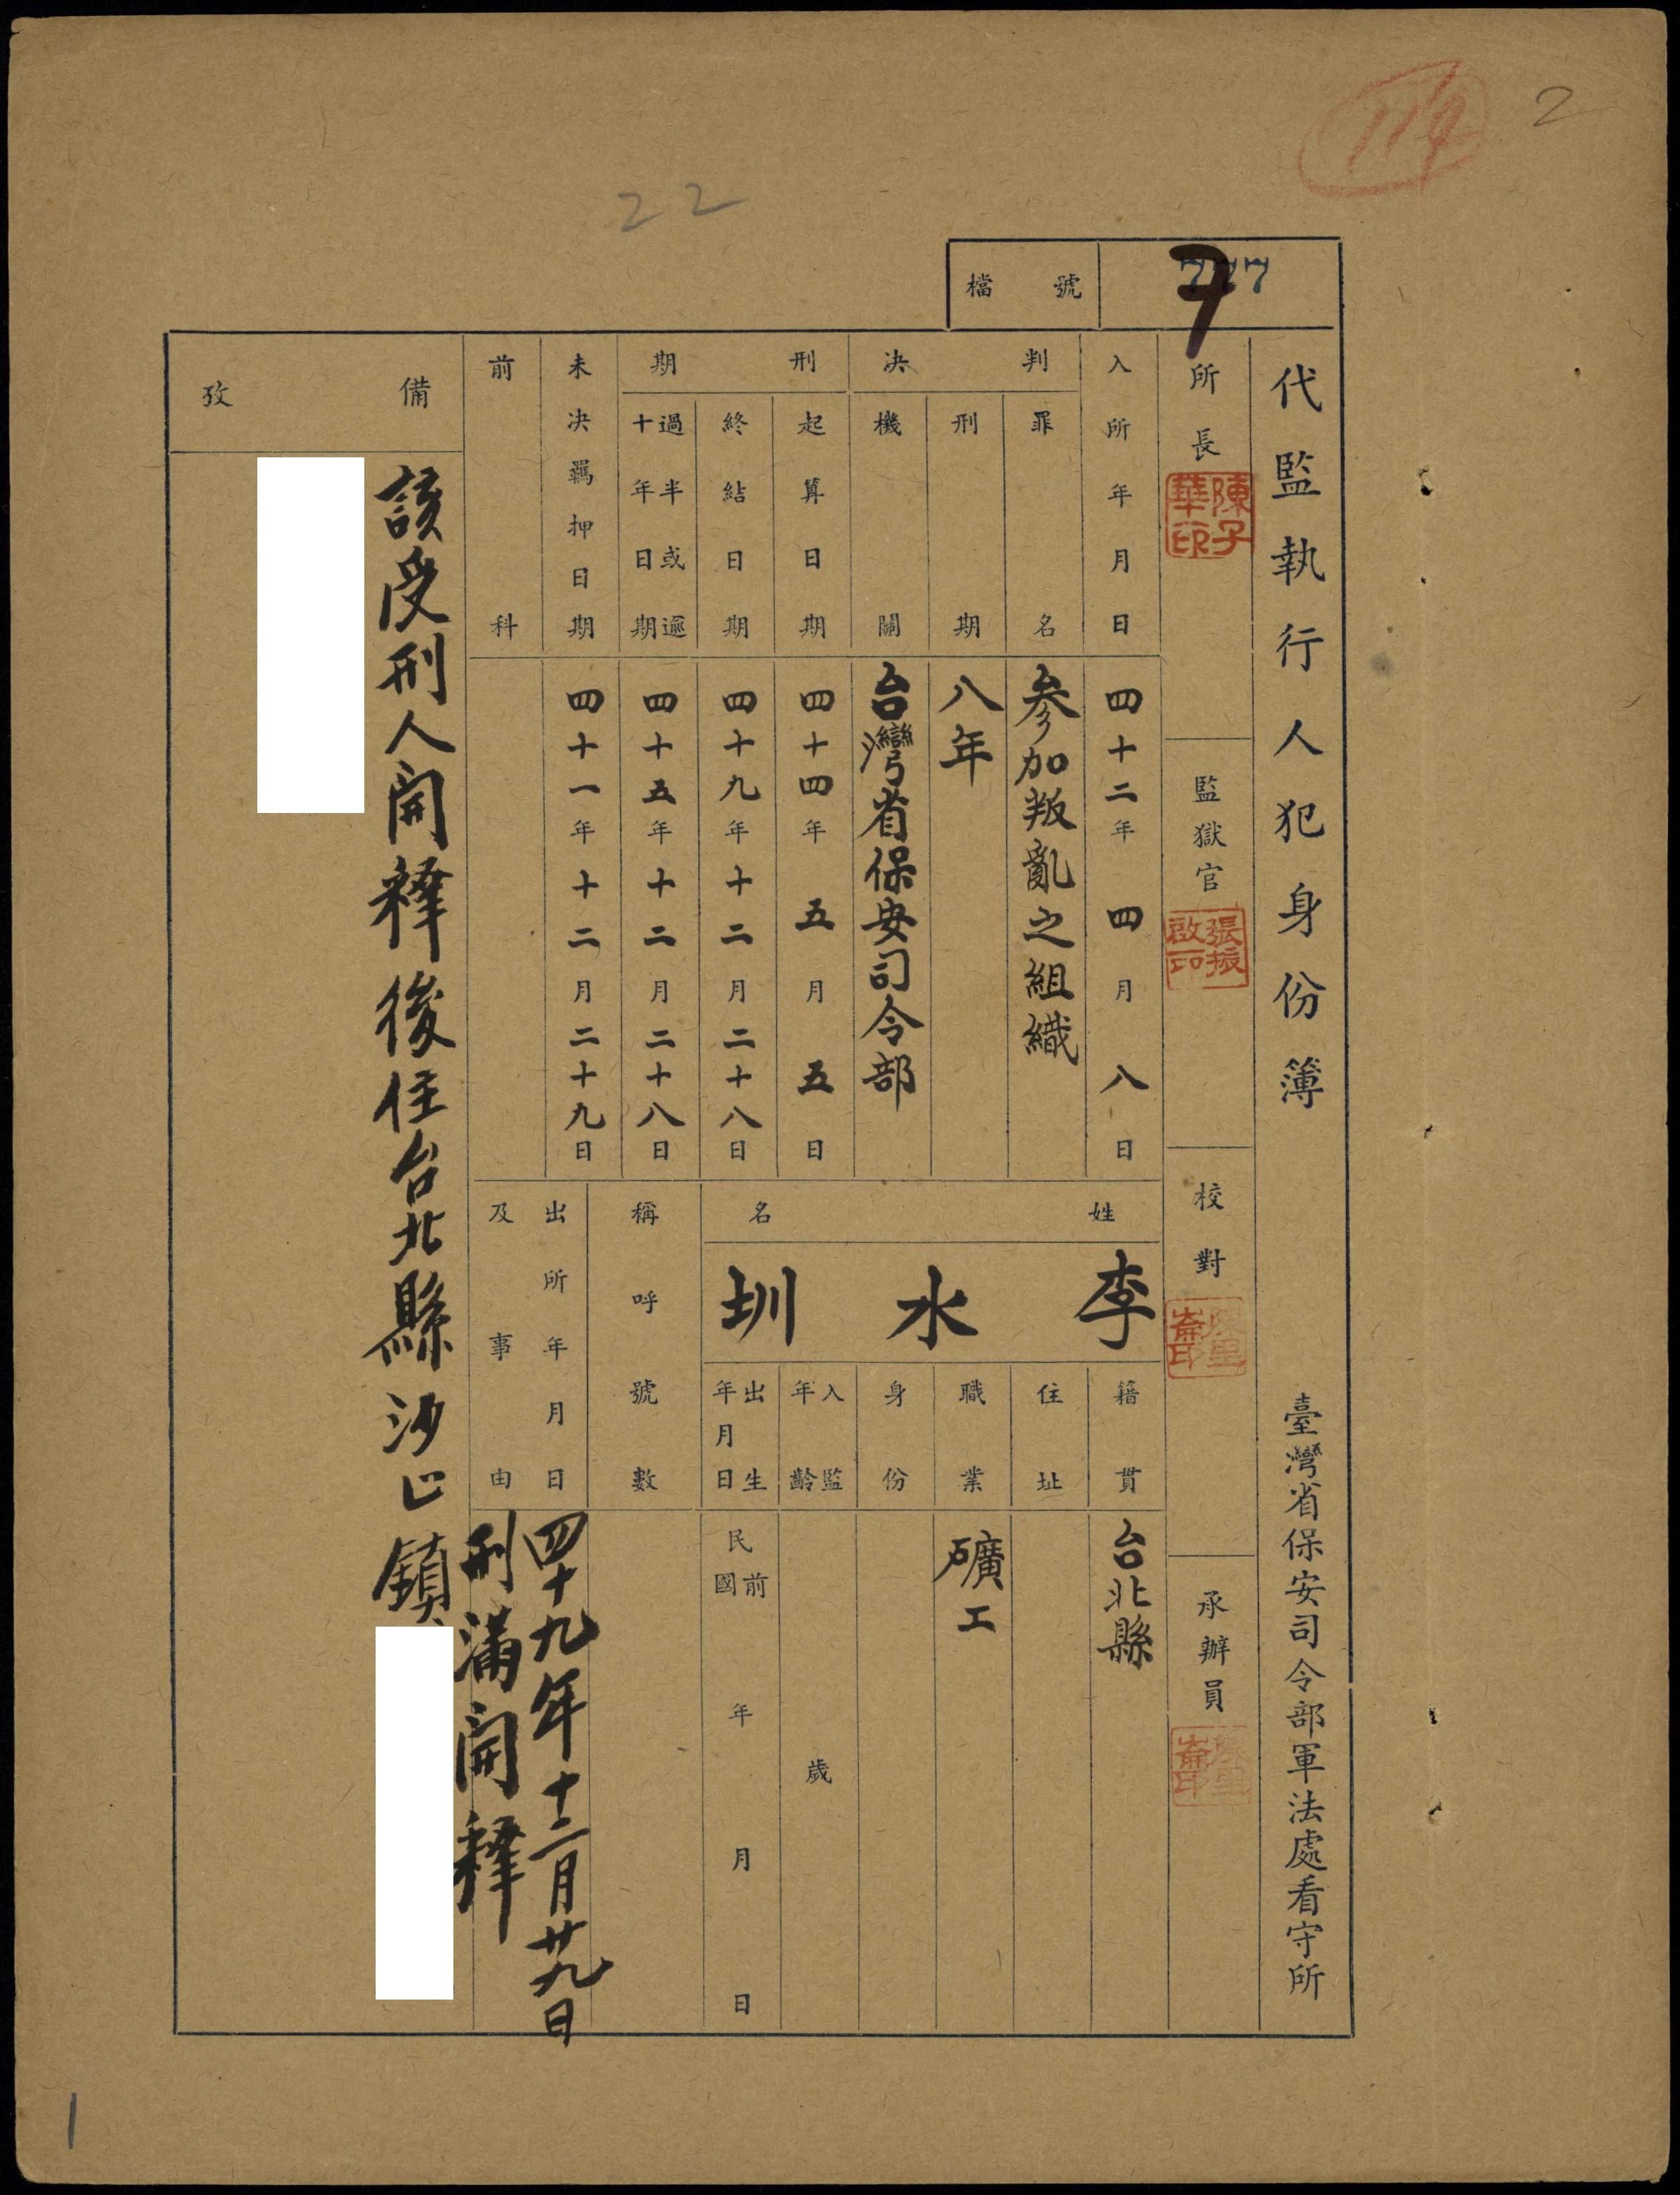 2
22
檔號
777
7
代監執行人犯身份簿
臺灣省保安司令部軍法處看守所
所長
陳子華印
監獄官
張振啟印
校對
承辦員
入所年月日
四十二年四月八日
判決
罪名
參加叛亂之組織
刑期
八年
機關
台灣省保安司令部
刑期
起算日期
四十四年五月五日
終結日期
四十九年十二月二十八日
過半或逾十年日期
四十五年十二月二十八日
未決羈押日期
四十一年十二月二十九日
前科
姓名
李水圳
籍貫
台北縣
住址
職業
礦工
身份
入監年齡
歲
出生年月日
民國前
年月日
稱呼號數
出所年月日及事由
四十九年十二月廿九日
刑滿開釋
備攷
該受刑人開釋後住台北縣沙止鎮
1